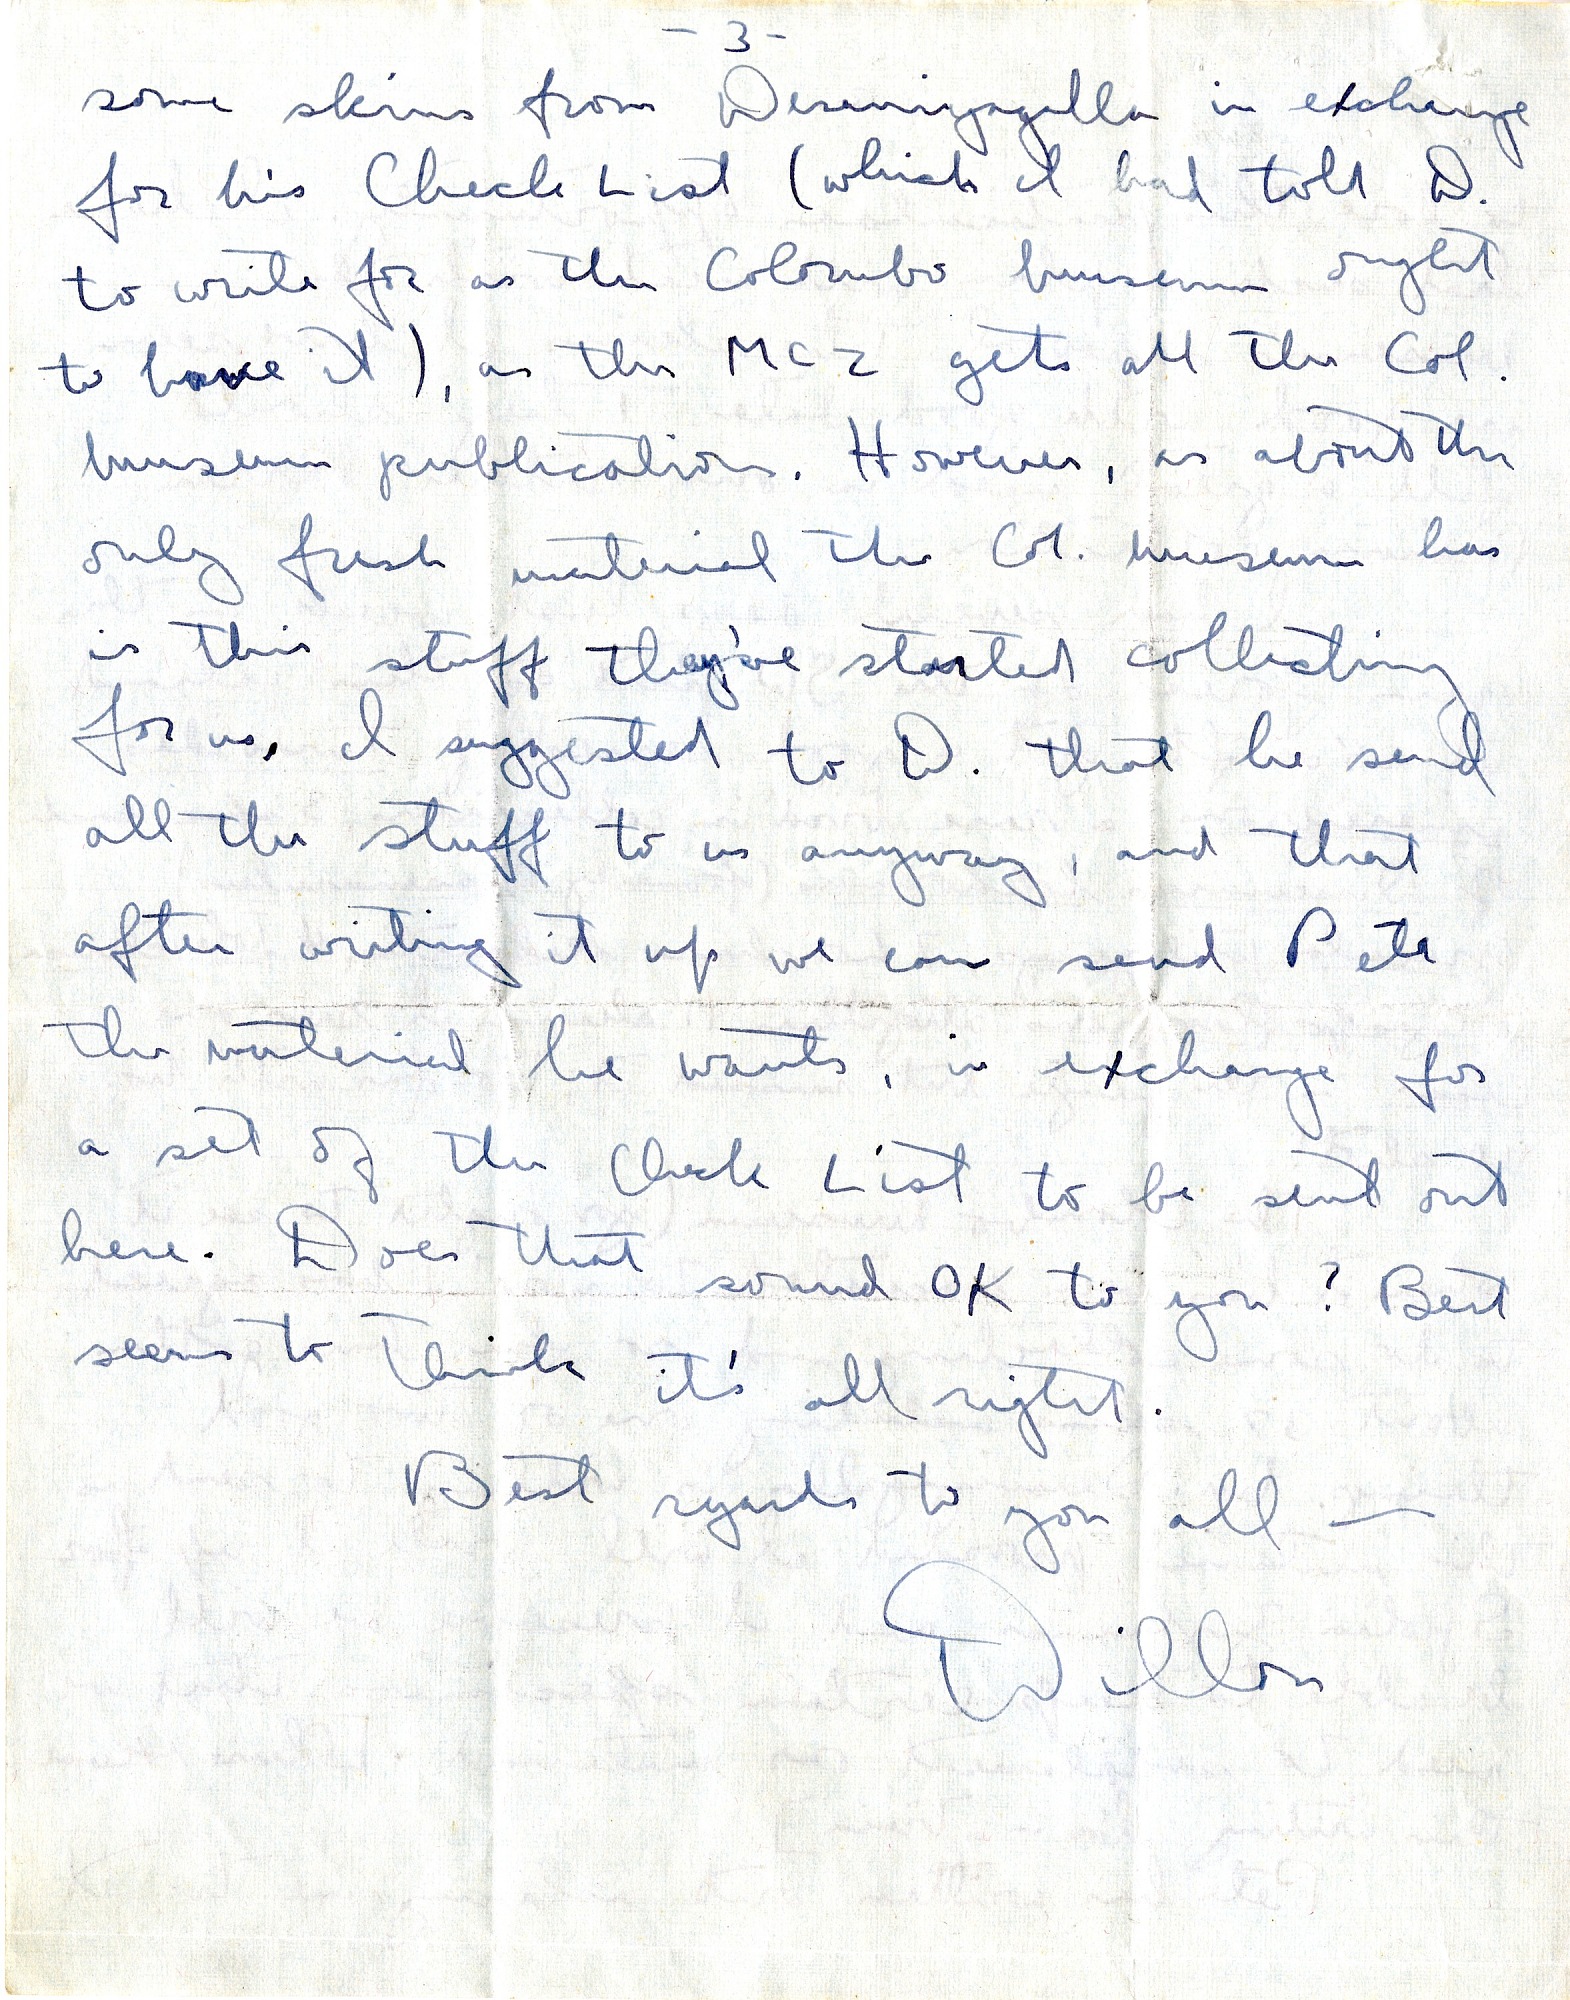 - 3 -
some skins from Deraniyagalla in exchange
for his Check List (which I had told D.
to write for as the Colombo museum ought
to have it), as the MCZ gets all the Col.
museum publications. However, as about the
only fresh material the Col. museum has
is this stuff they've started collecting
for us, I suggested to D. that he send
all the stuff to us anyway, and that
after writing it up we can send Pete
the material he wants, in exchange for
a set of the Check List to be sent out
here. Does that sound OK to you? Bert
seems to think it's all right.
Best regards to you all —
Dillon